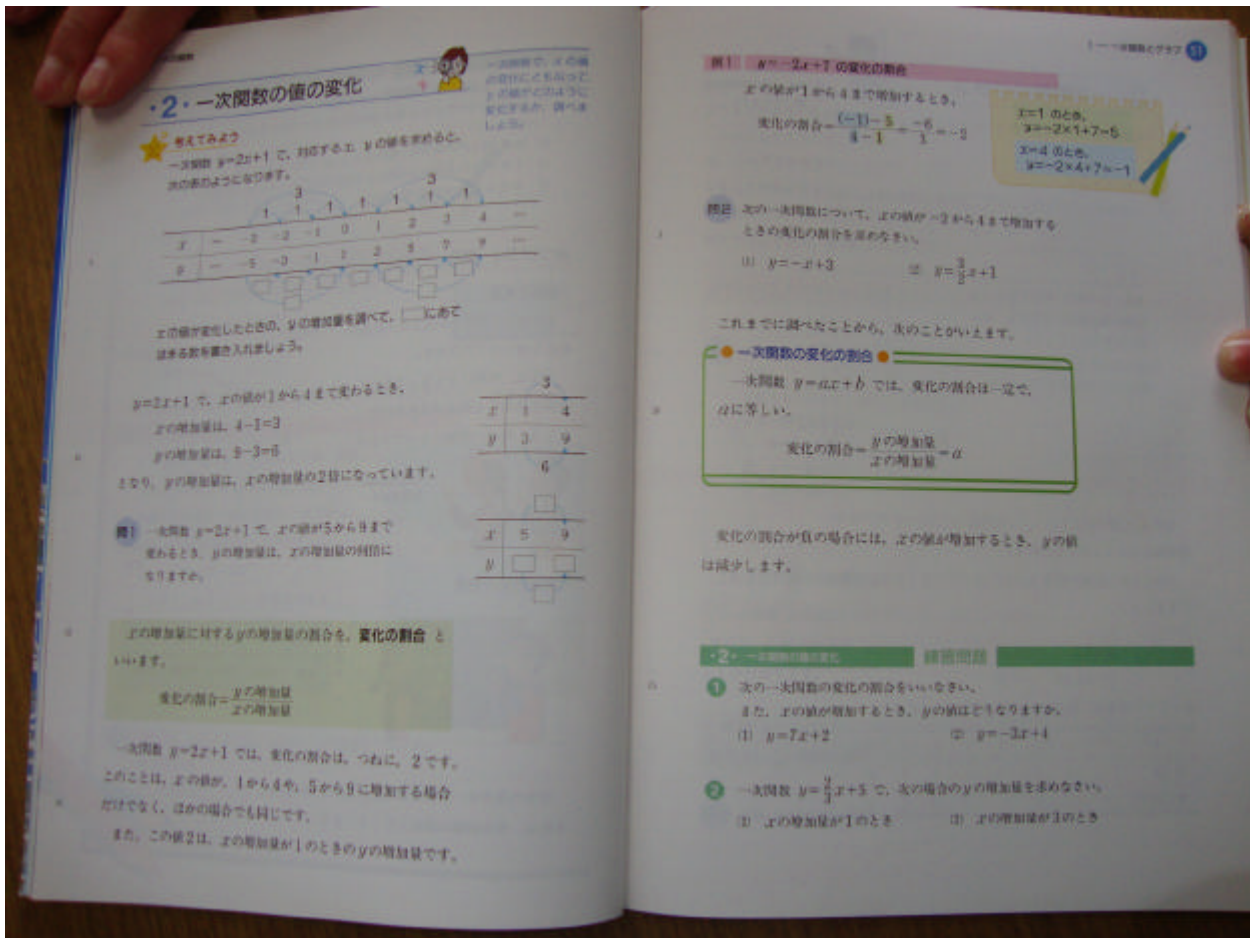 ・2・一次関数の値の変化
一次関数で、xの値
の変化にともなって
yの値がどのように
変化するか、調べま
しょう。
考えてみよう
一次関数 y=2x+1 で、対応するx、yの値を求めると、
次の表のようになります。
3 3
1 1 1 1 1 1 1
x … -3 -2 -1 0 1 2 3 4 …
y … -5 -3 -1 1 3 5 7 9 …
xの値が変化したときの、yの増加量を調べて、□にあて
はまる数を書き入れましょう。
y=2x+1 で、xの値が1から4まで変わるとき、
xの増加量は、4-1=3
yの増加量は、9-3=6
となり、yの増加量は、xの増加量の2倍になっています。
3
x 1 4
y 3 9
6
問1 一次関数 y=2x+1 で、xの値が5から9まで
変わるとき、yの増加量は、xの増加量の何倍に
なりますか。
x 5 9
y
xの増加量に対するyの増加量の割合を、変化の割合 と
いいます。
変化の割合=yの増加量/xの増加量
一次関数 y=2x+1 では、変化の割合は、つねに、2です。
このことは、xの値が、1から4や、5から9に増加する場合
だけでなく、ほかの場合でも同じです。
また、この値2は、xの増加量が1のときのyの増加量です。
1 一次関数とグラフ 51
例1 y=-2x+7 の変化の割合
xの値が1から4まで増加するとき、
変化の割合=(-1)-5/4-1=-6/3=-2
x=1 のとき、
y=-2×1+7=5
x=4 のとき、
y=-2×4+7=-1
問2 次の一次関数について、xの値が-2から4まで増加する
ときの変化の割合を求めなさい。
(1) y=-x+3 (2) y=3/2x+1
これまでに調べたことから、次のことがいえます。
一次関数の変化の割合
一次関数 y=ax+b では、変化の割合は一定で、
aに等しい。
変化の割合=yの増加量/xの増加量=a
変化の割合が負の場合には、xの値が増加するとき、yの値
は減少します。
・2・ 一次関数の値の変化 練習問題
1 次の一次関数の変化の割合をいいなさい。
また、xの値が増加するとき、yの値はどうなりますか。
(1) y=7x+2 (2) y=-3x+4
2 一次関数 y=2/3x+5 で、次の場合のyの増加量を求めなさい。
(1) xの増加量が1のとき (2) xの増加量が3のとき